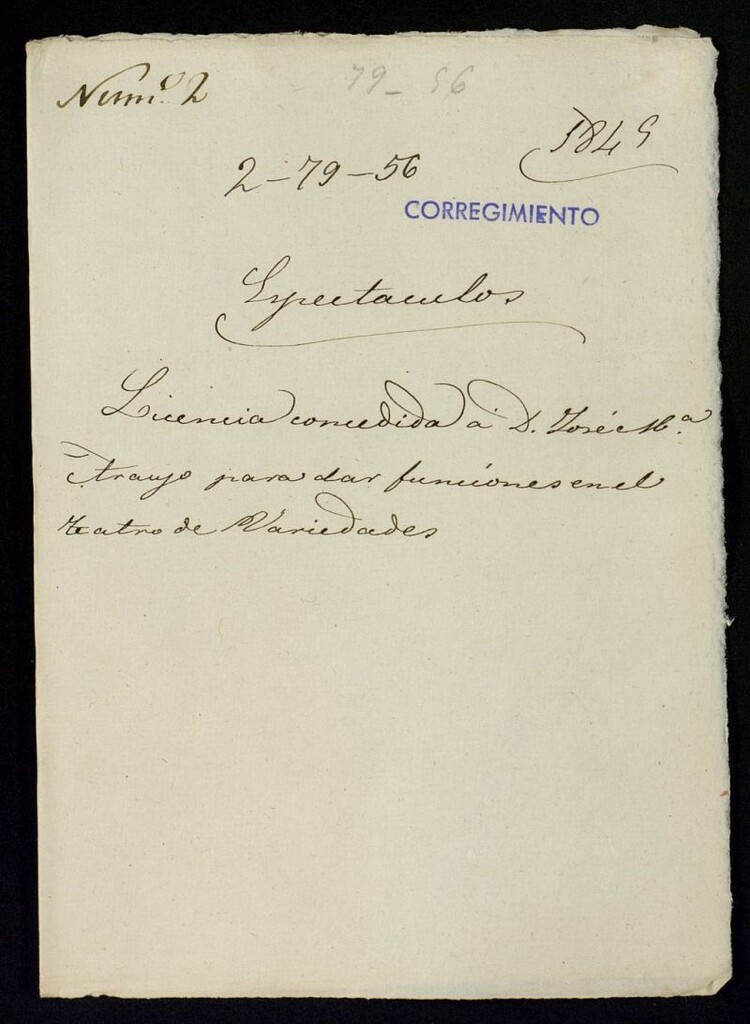 Num.º 2
79-56
1849
2-79-56
CORREGIMIENTO
Espectaculos
Licencia concedida á D. José M.ª
Araujo para dar funciones en el
teatro de Variedades